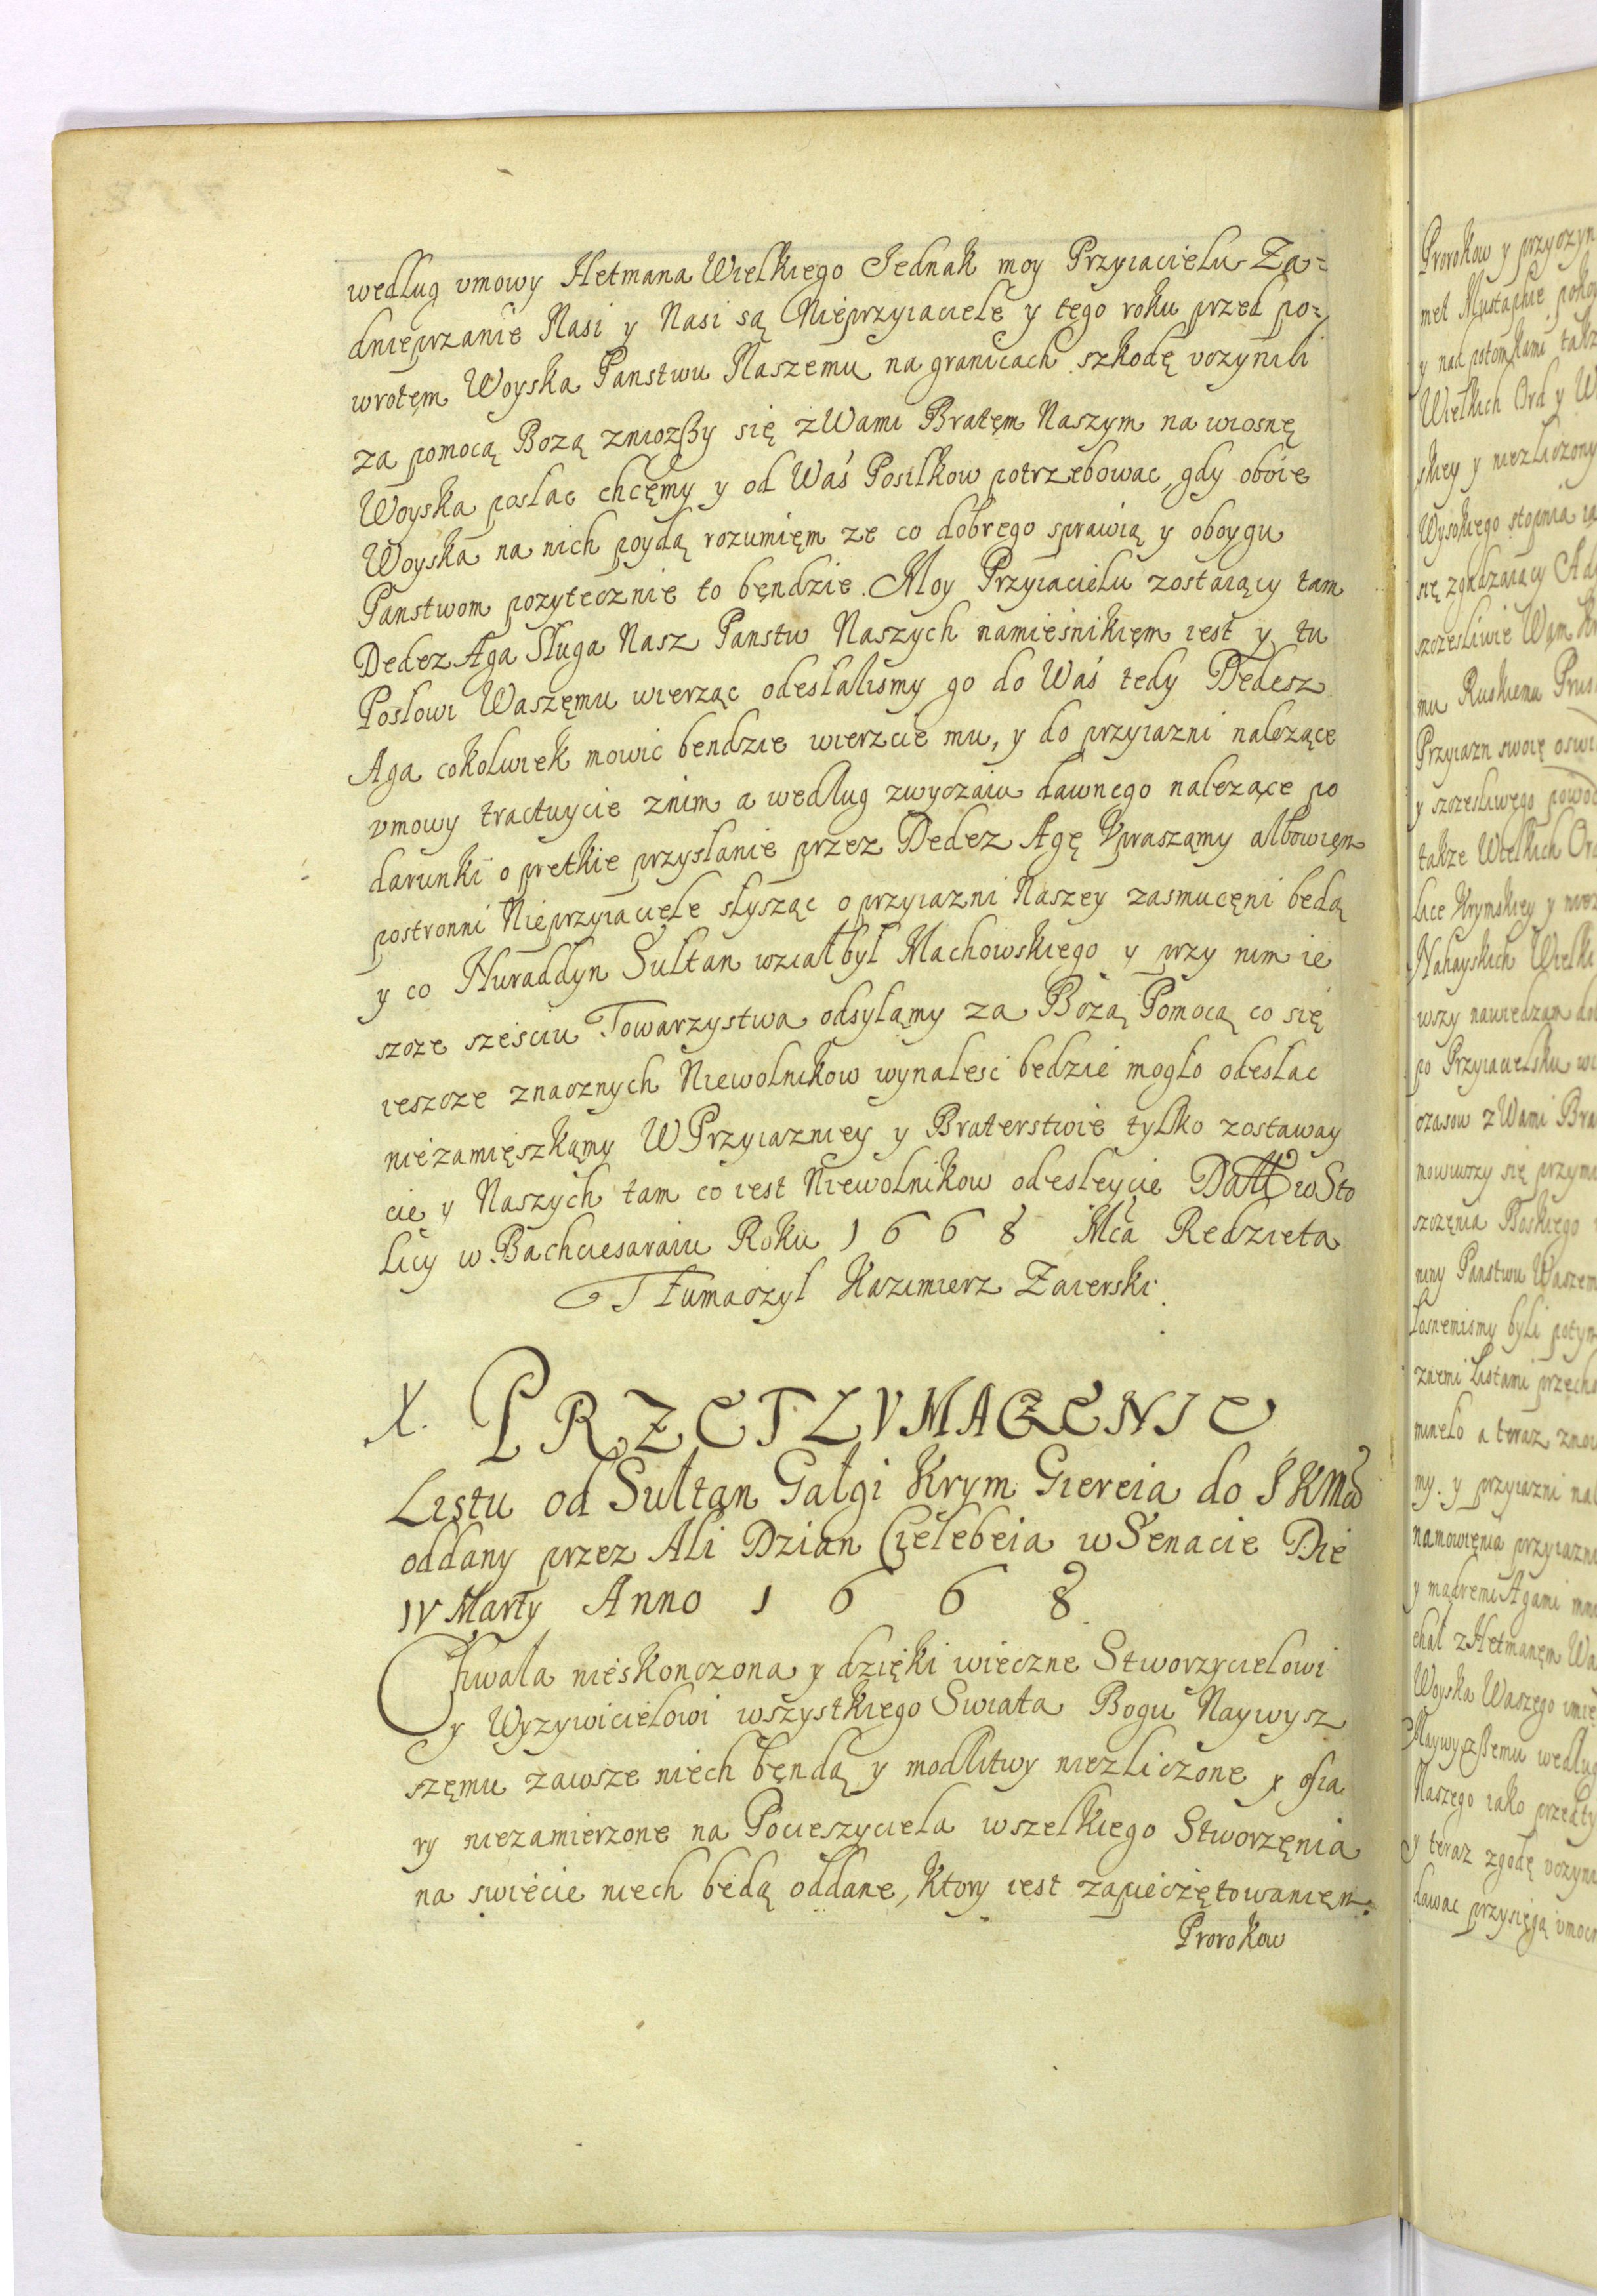 według vmowy Hetmana Wielkiego Jednak moy Przyiacielu Za=
dnieprzanie Nasi y Nasi są Nieprzyiaciele y tego roku przed po=
wrotem Woyska Panstwu Naszemu na granicach szkodę vczynili
za pomocą Bozą zniozßy się z Wami Bratem Naszym na wiosnę
Woyska poslac chcęmy y od Waś Posilkow potrzebowac, gdy oboie
Woyska na nich poydą rozumięm ze co dobrego sprawią y oboygu
Panstwom pozytecznie to bęndzie. Moy Przyiacielu zostaiący tam
Dedez Aga Sługa Nasz Panstw Naszych namieśnikięm iest y tu
Posłowi Waszęmu wierząc odesłalismy go do Waś tedy Dedesz
Aga cokolwiek mowic bendzie wierzcie mu, y do przyiazni nalezące
vmowy tractuycie znim a według zwyczaiu dawnego nalezące po
darunki o prętkie przysłanie przez Dedez Agę Vpraszamy albowięm
postronni Nieprzyiaciele słysząc o przyiazni Naszey zasmucęni będą
y co Nuraddyn Sultan wziął był Machowskiego y przy nim ie
szcze sześciu Towarzystwa odsyłamy za Bożą Pomocą co się
ieszcze znacznych Niewolnikow wynaleść będzie mogło odesłac
niezamięszkąmy W Przyiazniey y Braterstwie tylko zostaway
cie y Naszych tam co iest Niewolnikow odesleycie Datt w Sto
licy w Bachciesaraiu Roku 1668 Mca Redzieta
Tłumaczył Kazimierz Zaierski.
X. PRZETŁVMACZENIE
Listu od Sułtan Gałgi Krym Giereia do J K Mci
oddany przez Ali Dzian Cielebeia w Senacie Die
IV Marty Anno 1668
Chwała nieskonczona y dzięki wieczne Stworzycielowi
y Wyzywicielowi wszystkiego Swiata Bogu Naywysz
szęmu zawsze niech bęndą y modlitwy niezliczone y ofia
ry niezamierzone na Pocieszyciela wszelkiego Stworzęnia
na swiecie niech będą oddane, ktory iest zapieczętowanięm
Prorokow
Prorokow y przyczyn
met Mustaphie
y nad potomkami takz
Wielkich Ord y W
skiey y niezliczony
Wysokiego stopnia
się zgadzaiący
szczesliwie Wam
mu Ruskiemu Prus
Przyiazn swoię oswi
y szczesliwego powod
takze Wielkich Ord
lice Krymskiey y niez
Nahayskich Wielki
wszy nawiedzam
po Przyiacielsku
czasow z Wami Bra
mowiwszy się przym
szczęnia Boskiego
niny Panstwu Waszem
byli potym
znemi Listami przech
minelo a teraz znow
my. y przyiazni nal
namowięnia przyiazni
y mądremi Agami
chal z Hetmanęm Wa
Woyska Waszego
Naywyzßemu według
Naszego iako przedty
y teraz zgodę vczyni
dawac przysięgą vmocn